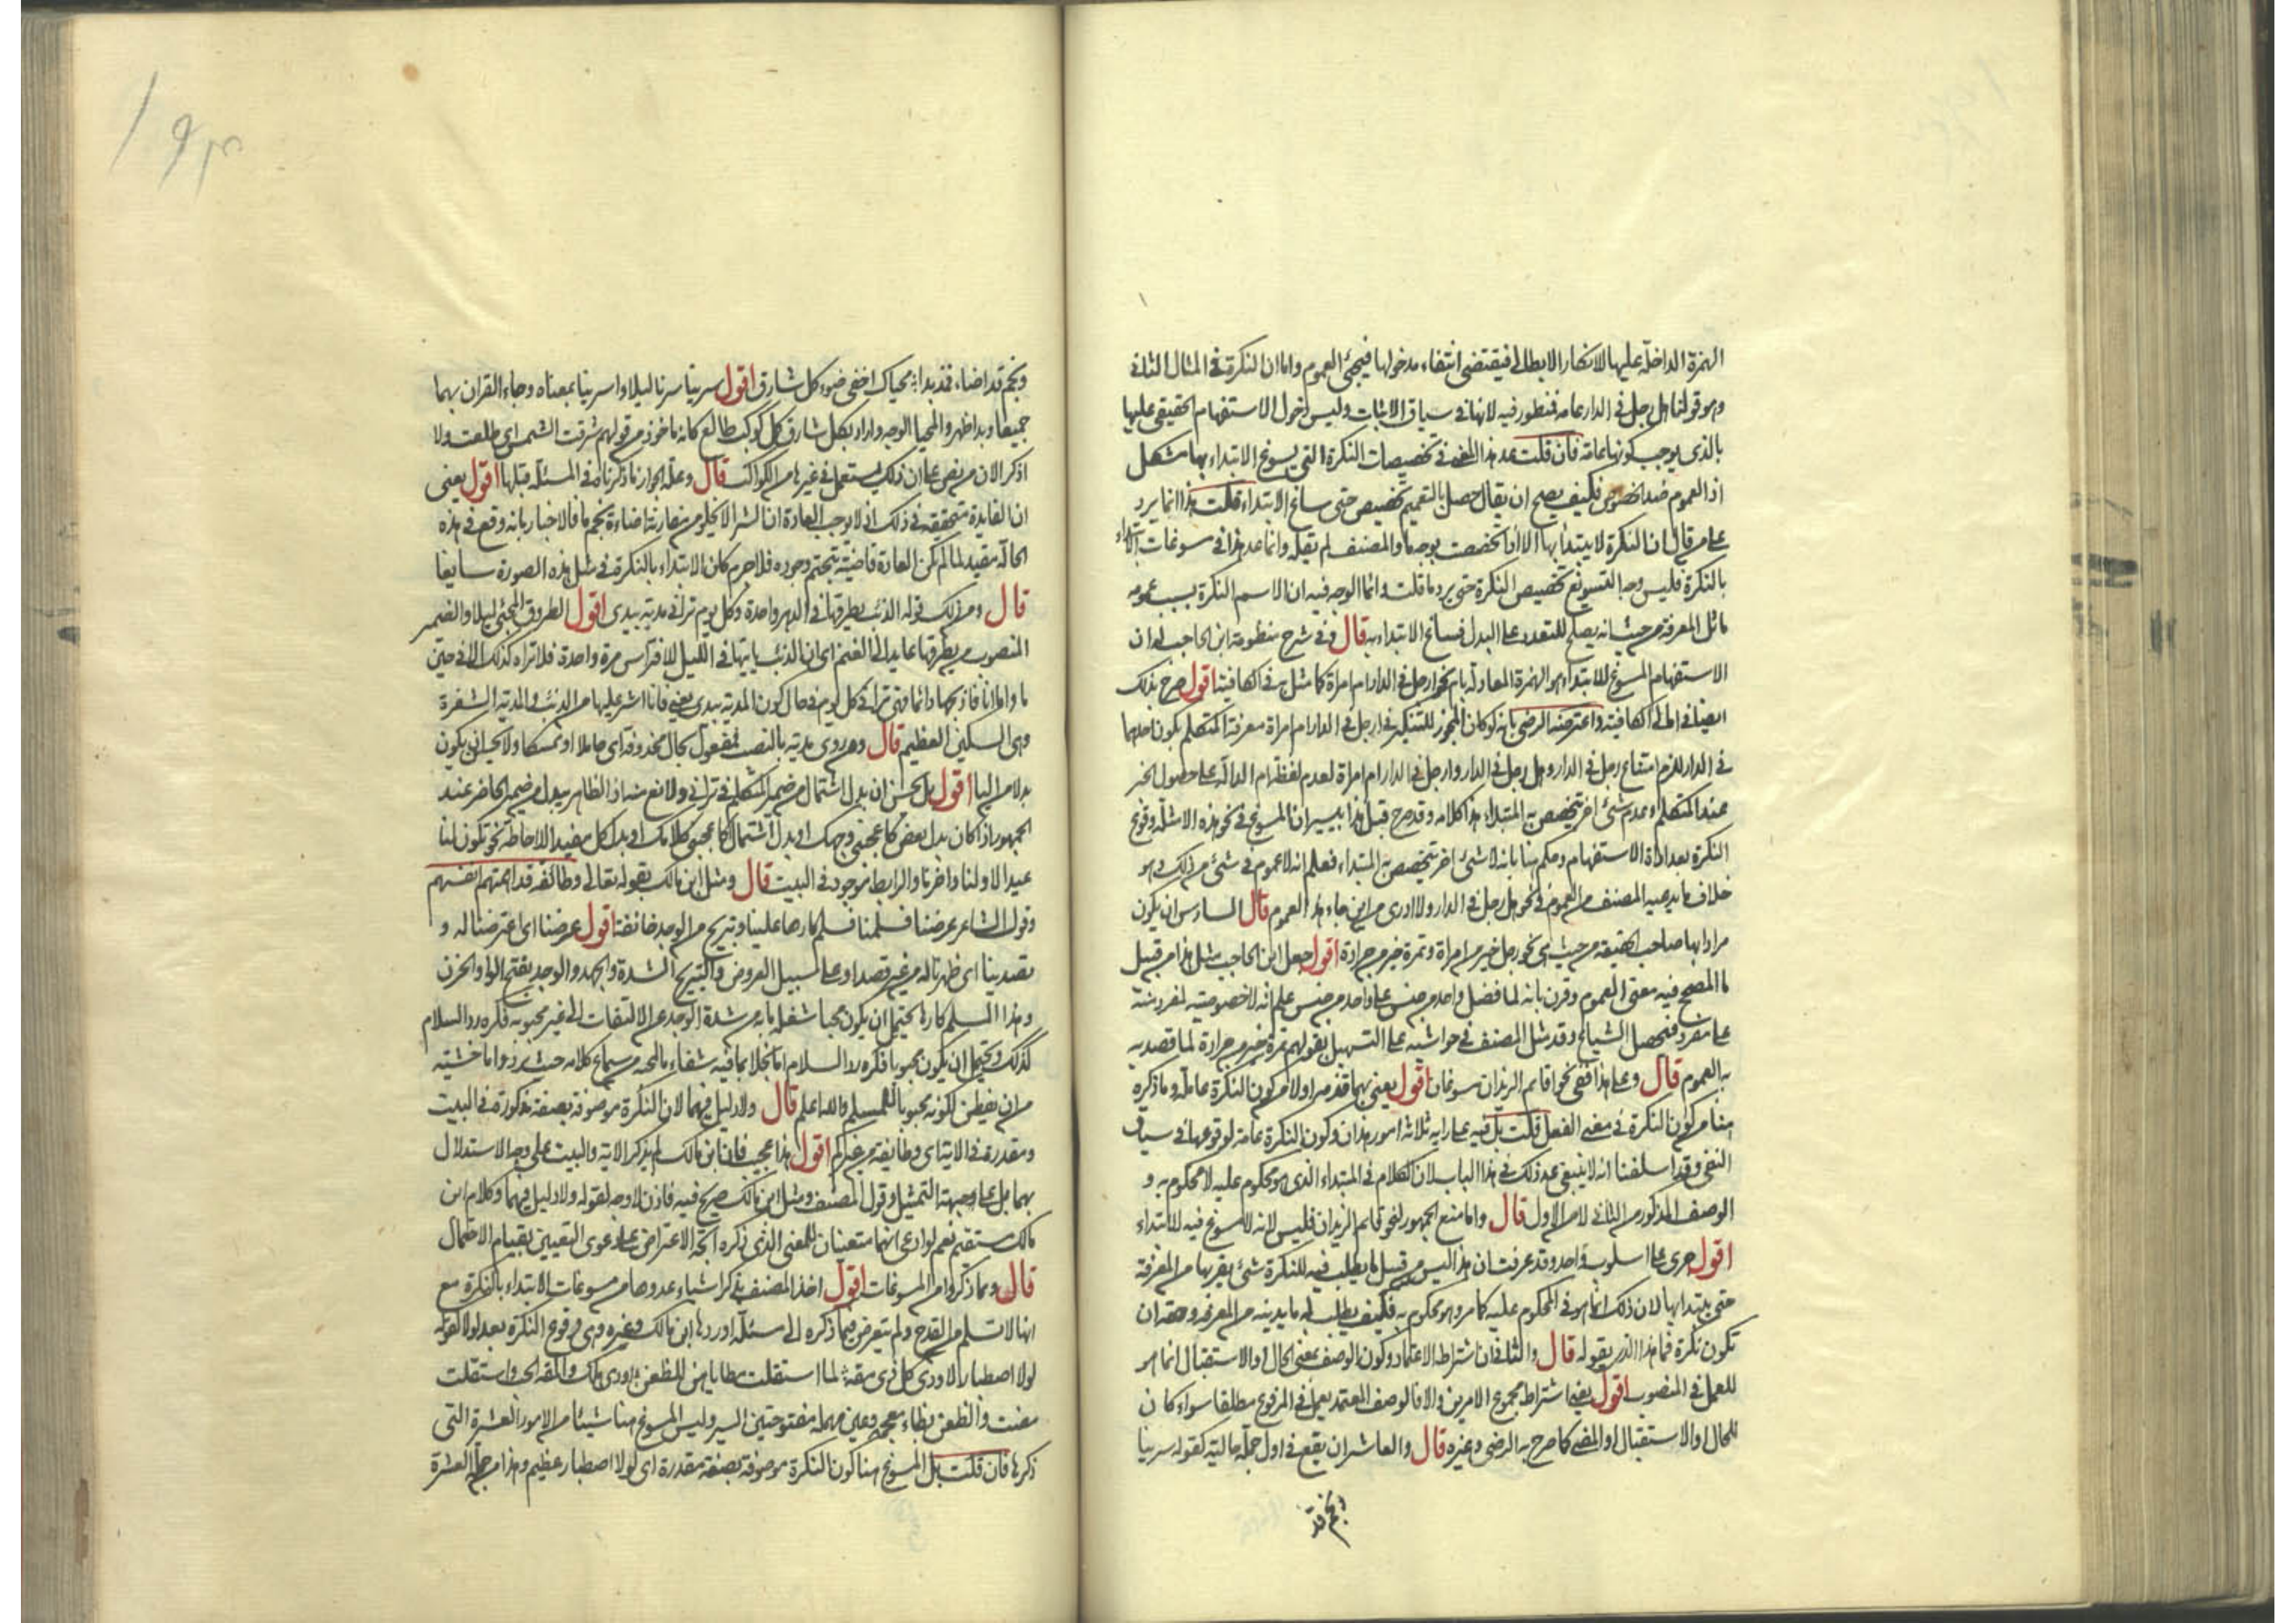 الهمزة الداخلة عليها للانكار الابطالي فيقتضى انتفاء مدخولها فيجئ العموم واما ان النكرة في المثال الثاني
وهو قولنا هل رجل في الدار عامة فمنظور فيه لانها في سياق الاثبات وليس دخول الاستفهام الحقيقي عليها
بالذي يوجب كونها عامة فان قلت عد هذا المعنى في تخصيصات النكرة التي يسوغ الابتداء بها مشكل
اذ العموم ضد الخصوص فكيف يصح ان يقال حصل بالتعميم تخصيص حتى ساغ الابتداء قلت هذا انما يرد
على من قال ان النكرة لا يبتدأ بها الا اذا تخصصت بوجه ما والمصنف لم يقله وانما عد هذا في مسوغات الابتداء
بالنكرة فليس وجه التسويغ تخصيص النكرة حتى يرد ما قلت وانما الوجه فيه ان الاسم النكرة بسبب عمومه
ماثل المعرفة من حيث انه يصلح للتعدد على البدل فساغ الابتداء به قال وفي شرح منظومة ابن الحاجب له ان
الاستفهام المسوغ للابتداء هو الهمزة المعادلة بام نحو ارجل في الدار ام امراة كما مثل به في الكافية اقول صرح بذلك
ايضا في امالى الكافية واعترضه الرضى بانه لو كان المجوز للتنكير في ارجل في الدار ام امراة معرفة المتكلم بكون احدهما
في الدار للزم امتناع رجل في الدار وهل رجل في الدار وارجل في الدار ام امراة لعدم لفظة ام الدالة على حصول الخبر
عند المتكلم وعدم شئ اخر يتخصص به المبتداء هذا كلامه وقد صرح قبل هذا بيسير ان المسوغ في نحو هذه الامثلة وقوع
النكرة بعد اداة الاستفهام وحكم هنا بانه لا شئ اخر يتخصص به المبتداء فعلم انه لا عموم في شئ من ذلك وهو
خلاف ما يدعيه المصنف من العموم في نحو هل رجل في الدار ولا ادرى من اين جاء هذا العموم قال السادس ان يكون
مرادا بها صاحب الحقيقة من حيث هي نحو رجل خير من امراة وتمرة خير من جرادة اقول جعل ابن الحاجب مثل هذا من قبيل
ما المصحح فيه معنى العموم وقرن بانه لما فضل واحد من جنس على واحد من جنس علم انه لا خصوصية لمفرد منه
على مفرد فتحصل الشياع وقد مثل المصنف في حواشيه على التسهيل بقولهم تمرة خير من جرادة لما قصد به
به العموم قال وعلى هذا ففي نحو اقائم الزيدان مسوغان اقول يعني بهما ما قدمه اولا من كون النكرة عاملة وما ذكره
هنا من كون النكرة في معنى الفعل قلت بل فيه على رايه ثلاثة امور هذان وكون النكرة عامة لوقوعها في سياق
النفي وقد اسلفنا انه لا ينبغي عد ذلك في هذا الباب لان الكلام في المبتداء الذي هو محكوم عليه لا محكوم به و
الوصف المذكور من الثاني لا من الاول قال واما منع الجمهور لنحو قائم الزيدان فليس لانه لا مسوغ فيه للابتداء
اقول جرى على اسلوب واحد وقد عرفت ان هذا ليس من قبيل ما يطلب فيه للنكرة شئ يقربها من المعرفة
حتى يبتدا بها لان ذلك انما هو في المحكوم عليه كما مر وهو محكوم به فكيف يطلب له ما يدينه من المعرفة وحقه ان
تكون نكرة فما هذا الذي يقوله قال والثاني ان اشتراط الاعتماد وكون الوصف بمعنى الحال او الاستقبال انما هو
للعمل في المنصوب اقول يعني اشتراط مجموع الامرين والا فالوصف المعتمد يعمل في المرفوع مطلقا سواء كان
للحال او الاستقبال او المضي كما صرح به الرضى وغيره قال والعاشر ان يقع في اول جملة حالية كقوله سرينا
ونجم قد
ونجم قد اضاء فمذ بدا محياك اخفى ضوءه كل شارق اقول سرينا سرنا ليلا واسرينا بمعناه وجاء القران بهما
جميعا وبدا ظهر والمحيا الوجه واراد بكل شارق كل كوكب طالع كانه ماخوذ من قولهم شرقت الشمس اى طلعت ولا
اذكر الان من نص على ان ذلك يستعمل في غيرها من الكواكب قال وعلة الجواز ما ذكرناه في المسئلة قبلها اقول يعني
ان الفايدة متحققة في ذلك اذ لا يوجب العادة ان السرى لا يخلو من مقارنة اضاءة نجم ما فالاخبار بانه وقع في هذه
الحالة مفيد لما لم تكن العادة قاضية بتحتم وجوده فلا جرم كان الابتداء بالنكرة في مثل هذه الصورة سايغا
قال ومن ذلك قوله الذئب يطرقها في الدهر واحدة وكل يوم تراني مدية بيدى اقول الطروق المجئ ليلا والضمير
المنصوب من يطرقها عايد الى الغنم اى ان الذئب ياتيها في الليل للافتراس مرة واحدة فلا تراه كذلك الا في حين
ما واما انا فاذبحها دائما فهي تراني كل يوم في حال كون المدية بيدى يعني فانا اشر عليها من الذئب والمدية الشفرة
وهي السكين العظيم قال ومن روى مدية بالنصب فمفعول بحال محذوفة اى حاملا او ممسكا ولا يحسن ان يكون
بدلا من اليا اقول بل يحسن ان بدل اشتمال من ضمير المتكلم في تراني ولا مانع منه اذ الظاهر يبدل من ضمير الحاضر عند
الجمهور اذا كان بدل بعض كما عجبني وجهك او بدل اشتمال كاعجبني كلامك او بدل كل مفيد الاحاطة نحو تكون لنا
عيدا لاولنا واخرنا والرابط موجود في البيت قال ومثل ابن مالك بقوله تعالى وطائفة قد اهمتهم انفسهم
وقول الشاعر عرضنا فسلمنا فسلم كارها علينا وتبريح من الوجد خانقه اقول عرضنا اى اعترضنا له و
تصدينا اى ظهرنا له من غير قصد او على سبيل العروض والتبريح الشدة والجهد والوجد بفتح الواو الحزن
وهذا المسلم كارها يحتمل ان يكون محبا شغل بابه من شدة الوجد عن الالتفات الى غير محبوبه فكره رد السلام
لذلك ويحتمل ان يكون محبوبا فكره رد السلام اما بخلا بما فيه شفاء بالمحبه من سماع كلامه حيث يرد واما خشية
من ان يفطن لكونه محبوبا للمسلم والله اعلم قال ولا دليل فيهما لان النكرة موصوفة بصفة مذكورة في البيت
ومقدرة في الاية اى وطايفة من غيركم اقول هذا عجب فان ابن مالك لم يذكر الاية والبيت على وجه الاستدلال
بهما بل على وجهة التمثيل وقول المصنف ومثل ابن مالك صريح فيه فاذن لا وجه لقوله ولا دليل فيهما وكلام ابن
مالك مستقيم نعم لو ادعى انهما متعينان للمعنى الذي ذكره اتجه الاعتراض على دعوى التعيين بقيام الاحتمال
قال ومما ذكروا من المسوغات اقول اخذ المصنف يذكر اشياء عدوها من مسوغات الابتداء بالنكرة مع
انها لا تسلم من القدح ولم يتعرض فيما ذكره الى مسئلة اوردها ابن مالك وغيره وهي وقوع النكرة بعد لولا كقوله
لولا اصطبار لاودى كل ذى مقة لما استقلت مطاياهن للظعن اودى هلك والمقة الحب واستقلت
مضت والظعن بظاء معجمة وعين مهملة مفتوحتين السير وليس المسوغ هنا شيئا من الامور العشرة التي
ذكرها فان قلت بل المسوغ هنا كون النكرة موصوفة بصفة مقدرة اى لولا اصطبار عظيم وهذا من جملة العشرة